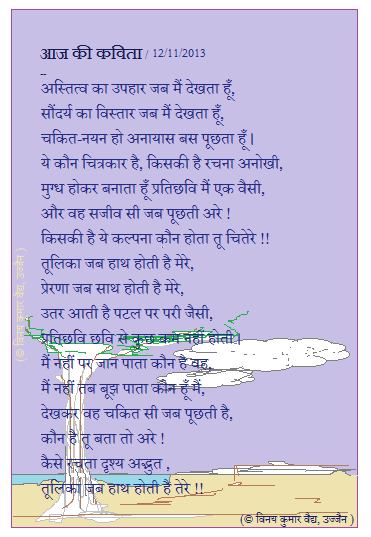 आज की कविता / 12/11/2013
--
अस्तित्व का उपहार जब मैं देखता हूँ,
सौंदर्य का विस्तार जब मैं देखता हूँ,
चकित-नयन हो अनायास बस पूछता हूँ |
ये कौन चित्रकार है, किसकी है रचना अनोखी,
मुग्ध होकर बनाता हूँ प्रतिछवि मैं एक वैसी,
और वह सजीव सी जब पूछती अरे !
किसकी है ये कल्पना कौन होता तू चितेरे !!
तूलिका जब हाथ होती है मेरे,
प्रेरणा जब साथ होती है मेरे,
उतर आती है पटल पर परी जैसी,
प्रतिछवि छवि से कुछ कम नहीं होती |
मैं नहीं पर जान पाता कौन है वह,
मैं नहीं तब बूझ पाता कौन हूँ मैं,
देखकर वह चकित सी जब पूछती है,
कौन है तू बता तो अरे !
कैसे रचता दृश्य अद्भुत ,
तूलिका जब हाथ होती है तेरे !!
(© विनय कुमार वैद्य, उज्जैन )
(© विनय कुमार वैद्य, उज्जैन )